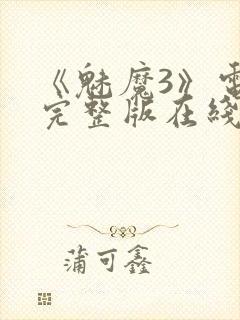 《魅魔3》電
完整版在綫
蒲可鑫